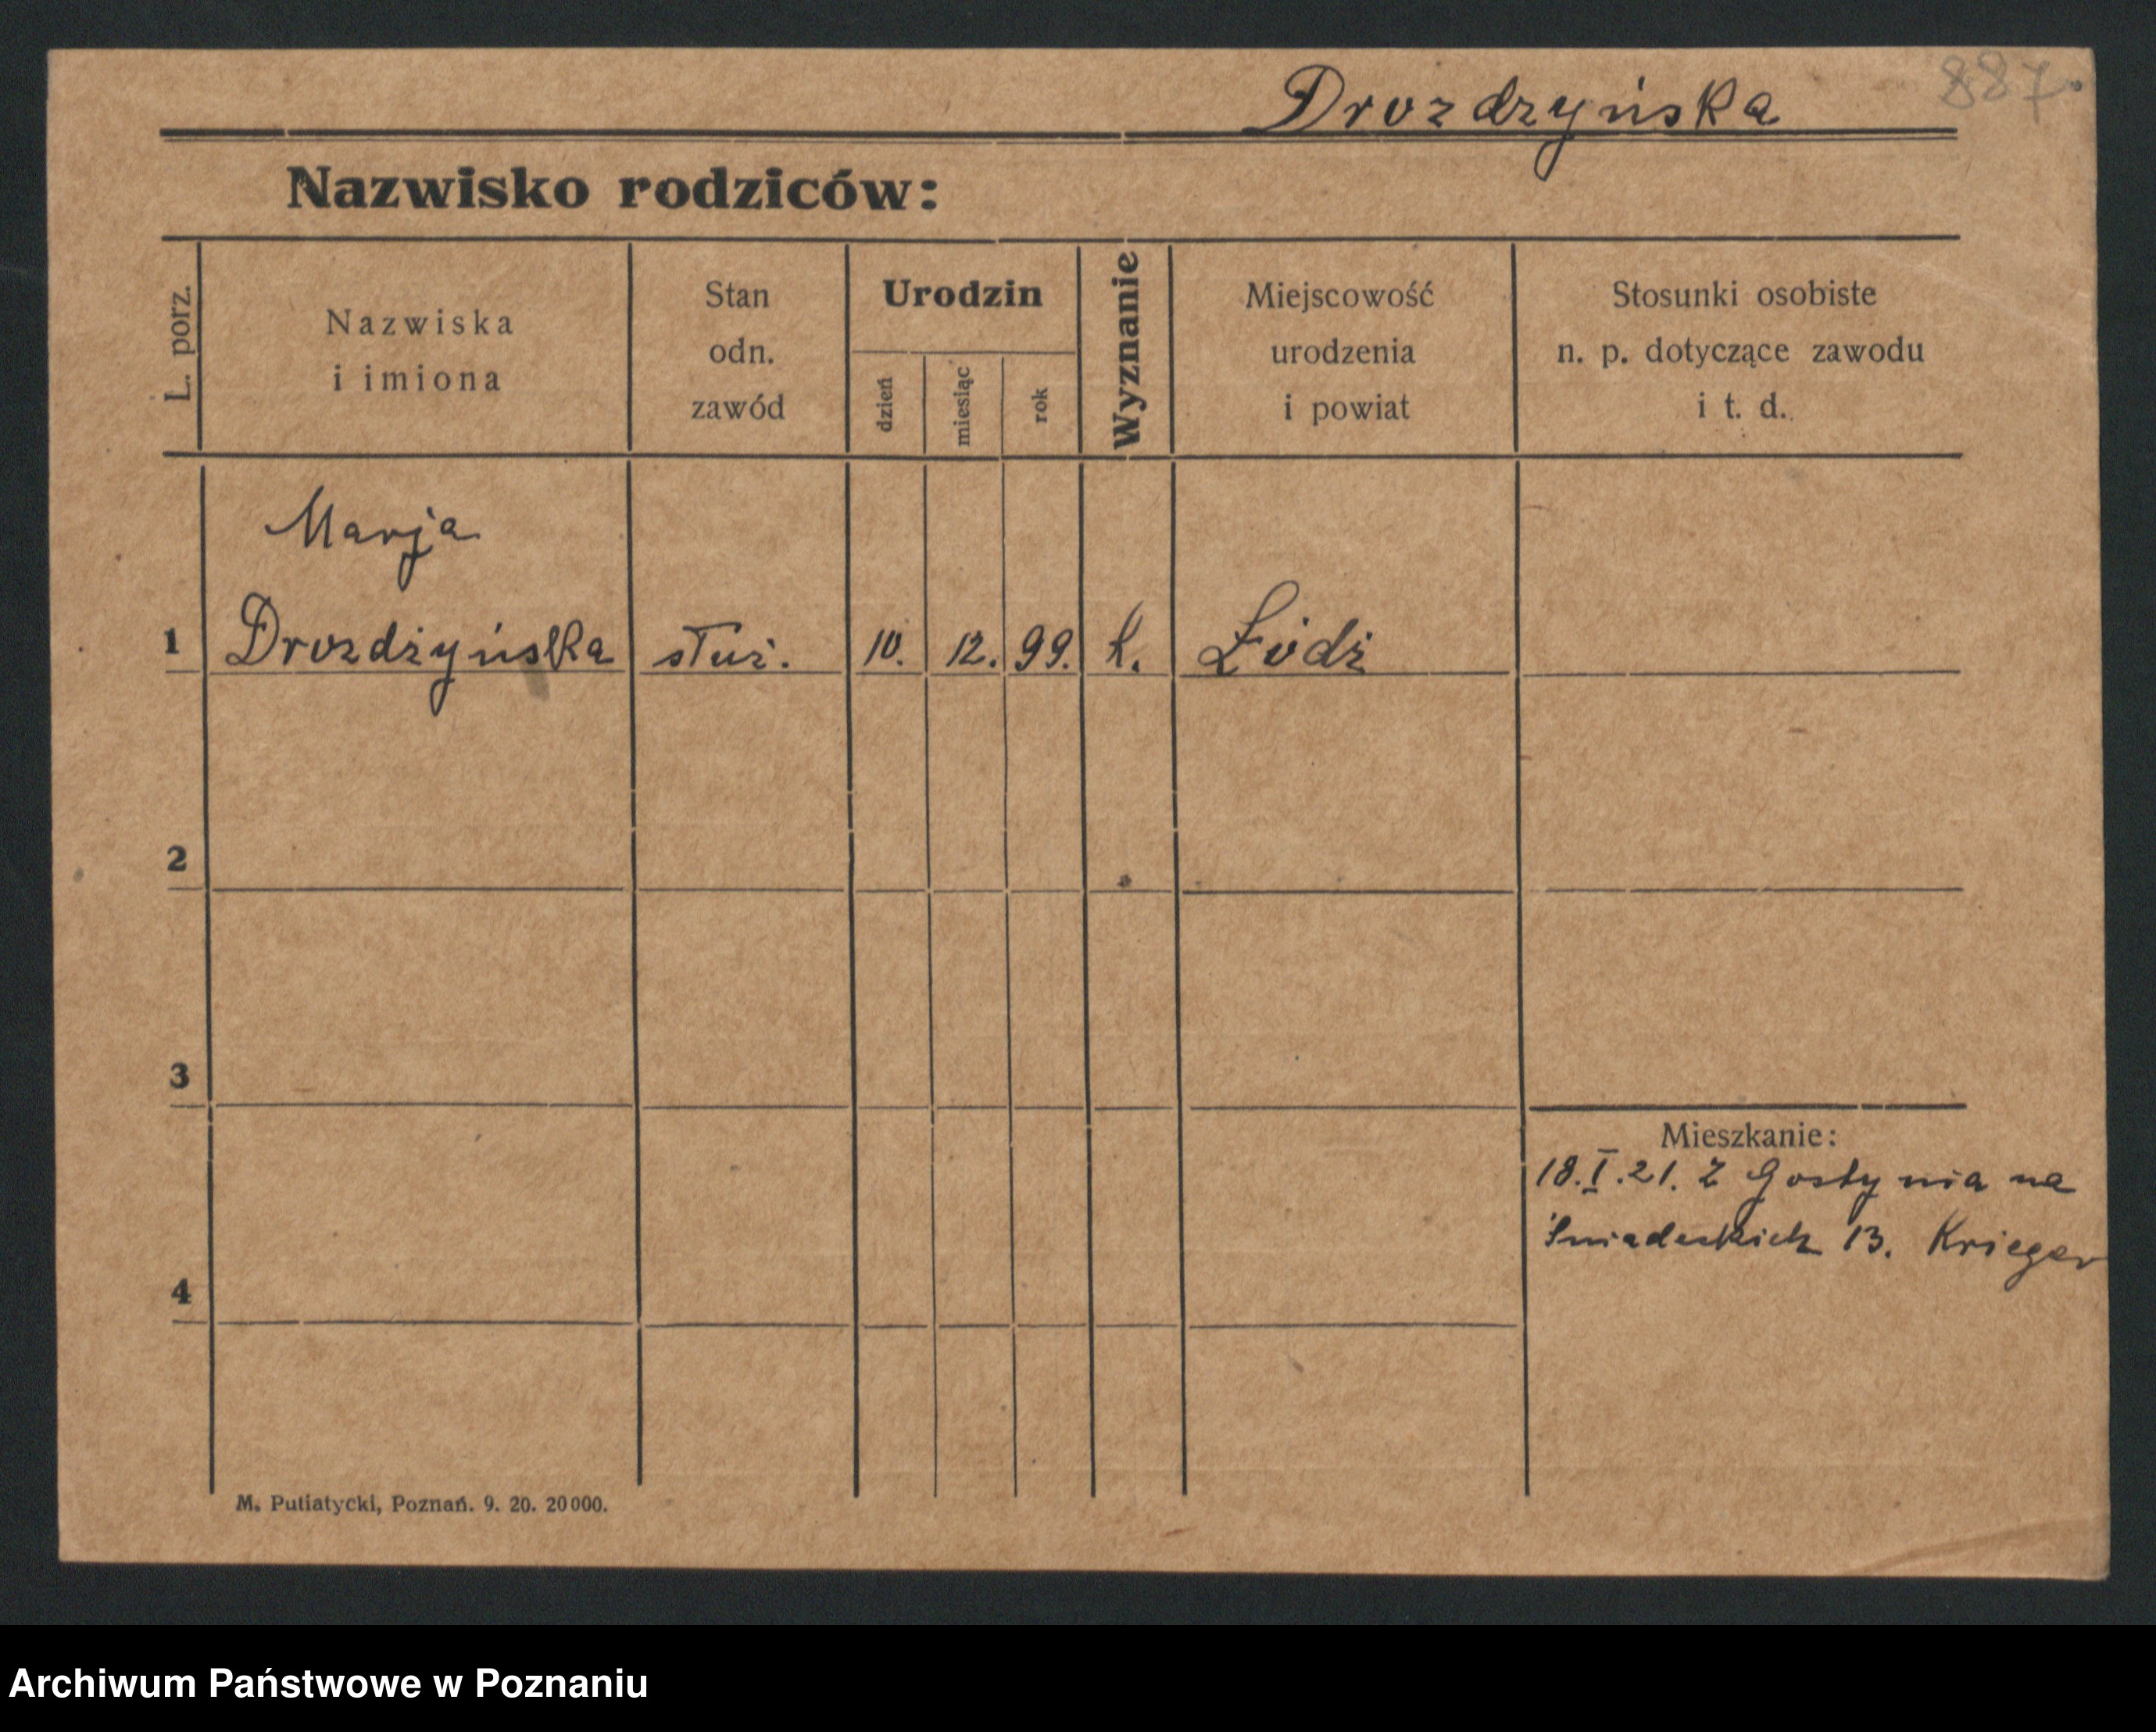 887.
Drozdzyńska
Nazwisko rodziców:
L. porz.
Nazwiska
i imiona
Stan
odn.
zawód
Urodzin
dzień
miesiąc
rok
Wyznanie
Miejscowość
urodzenia
i powiat
Stosunki osobiste
n. p. dotyczące zawodu
i t. d.
Marja
1 Drozdżyńska służ. 10. 12. 99. k. Łódź
2
3
Mieszkanie:
18.I.21. Z Gostynia na
Śniadeckich 13. Krieger
4
M. Putiatycki, Poznań. 9. 20. 20000.
Archiwum Państwowe w Poznaniu